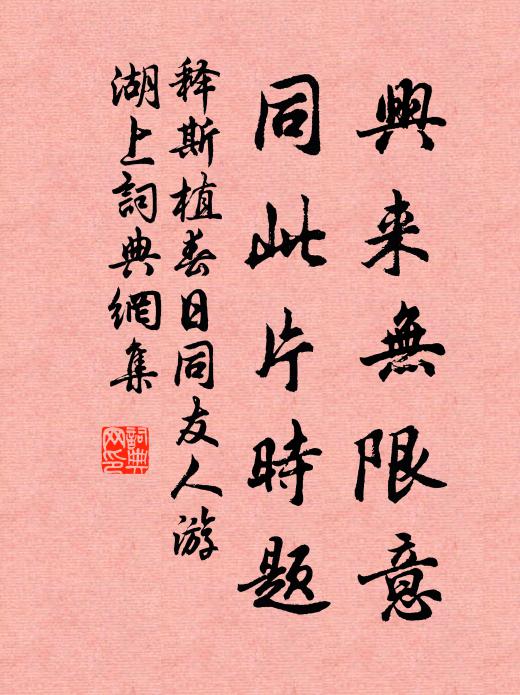 興来無限意
同此片時题
释斯植春日同友人游
湖上詞典網集
詞典
网印